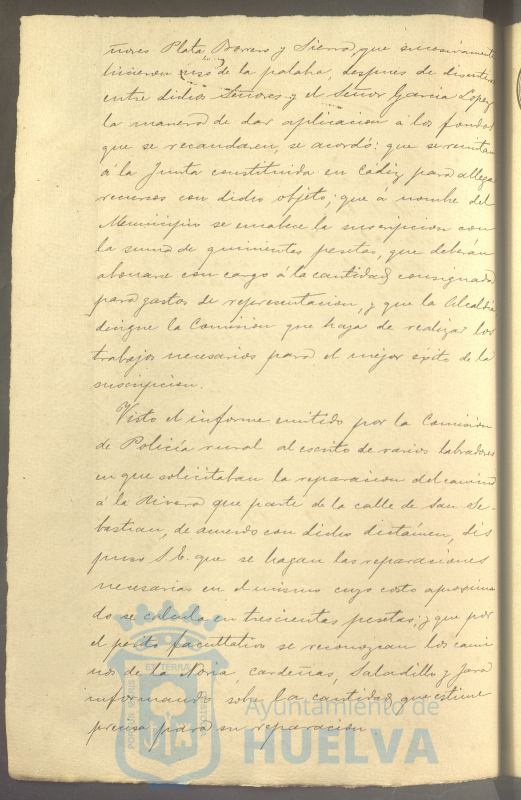 ñores Plata Borrero y Sierra, que sucesivamente
hicieron uso de la palabra, despues de discutirse
entre dichos Señores y el Señor Garcia Lopez
la manera de dar aplicacion á los fondos
que se recaudaren, se acordó: que se remitan
á la Junta constituida en Cádiz para allegar
recursos con dicho objeto; que á nombre del
Municipio se encabece la suscripcion con
la suma de quinientas pesetas, que deberán
abonarse con cargo á la cantidad consignada
para gastos de representacion, y que la Alcaldía
designe la Comision que haya de realizar los
trabajos necesarios para el mejor éxito de la
suscripcion.
Visto el informe emitido por la Comision
de Policía rural al escrito de varios labradores
en que solicitaban la reparacion del camino
á la Rivera que parte de la calle de San Se-
bastian, de acuerdo con dicho dictámen, dis
puso S. E. que se hagan las reparaciones
necesarias en el mismo cuyo costo aproxima
do se calcula en trescientas pesetas, y que por
el perito facultativo se reconozcan los cami
nos de la Noria, Cardeñas, Saladillo y Jara
informando sobre la cantidad que estime
precisa para su reparacion
Ayuntamiento de
HUELVA